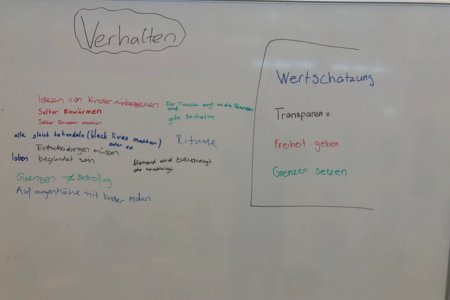 Verhalten
Ideen von Kinder einbeziehen
Der Trainer
Selber Einwärmen
gute Beispiele
Selber Gruppen machen
alle gleich behandeln (black lives matter)
Rituale
Entscheidungen müssen
loben
begründet sein
Niemand wird bevorzugt
Grenzen ≠ Bestrafung
Auf augenhöhe mit Kinder reden
Wertschätzung
Transparenz
Freiheit geben
Grenzen setzen